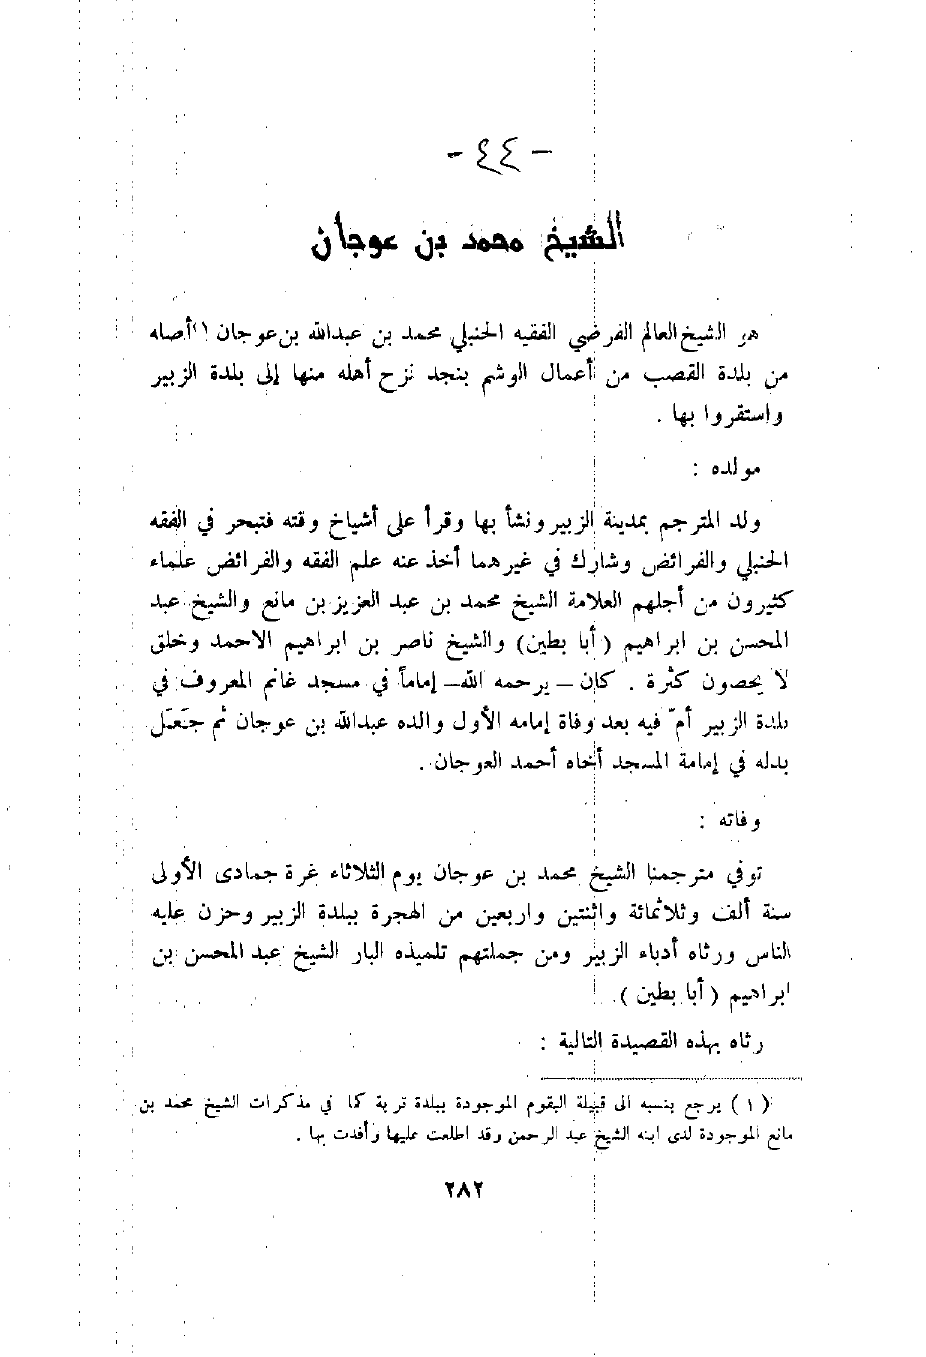 - ٤٤ -
الشيخ محمد بن عوجان
هو الشيخ العالم الفرضي الفقيه الحنبلي محمد بن عبدالله بن عوجان (١) أصله
من بلدة القصب من أعمال الوشم بنجد نزح أهله منها إلى بلدة الزبير
واستقروا بها .
مولده :
ولد المترجم بمدينة الزبير ونشأ بها وقرأ على أشياخ وقته فتبحر في الفقه
الحنبلي والفرائض وشارك في غيرهما أخذ عنه علم الفقه والفرائض علماء
كثيرون من أجلهم العلامة الشيخ محمد بن عبد العزيز بن مانع والشيخ عبد
المحسن بن ابراهيم ( أبا بطين ) والشيخ ناصر بن ابراهيم الاحمد وخلق
لا يحصون كثرة . كان – يرحمه الله – إماماً في مسجد غانم المعروف في
بلدة الزبير أمّ فيه بعد وفاة إمامه الأول والده عبدالله بن عوجان ثم جَعَل
بدله في إمامة المسجد أخاه أحمد العوجان .
وفاته :
توفي مترجمنا الشيخ محمد بن عوجان يوم الثلاثاء غرة جمادى الأولى
سنة ألف وثلاثمائة واثنتين واربعين من الهجرة ببلدة الزبير وحزن عليه
الناس ورثاه أدباء الزبير ومن جملتهم تلميذه البار الشيخ عبد المحسن بن
ابراهيم ( أبا بطين ) .
رثاه بهذه القصيدة التالية :
( ١ ) يرجع بنسبه الى قبيلة البقوم الموجودة ببلدة تربة كما في مذكرات الشيخ محمد بن
مانع الموجودة لدى ابنه الشيخ عبد الرحمن وقد اطلعت عليها وأفدت بها .
٢٨٢